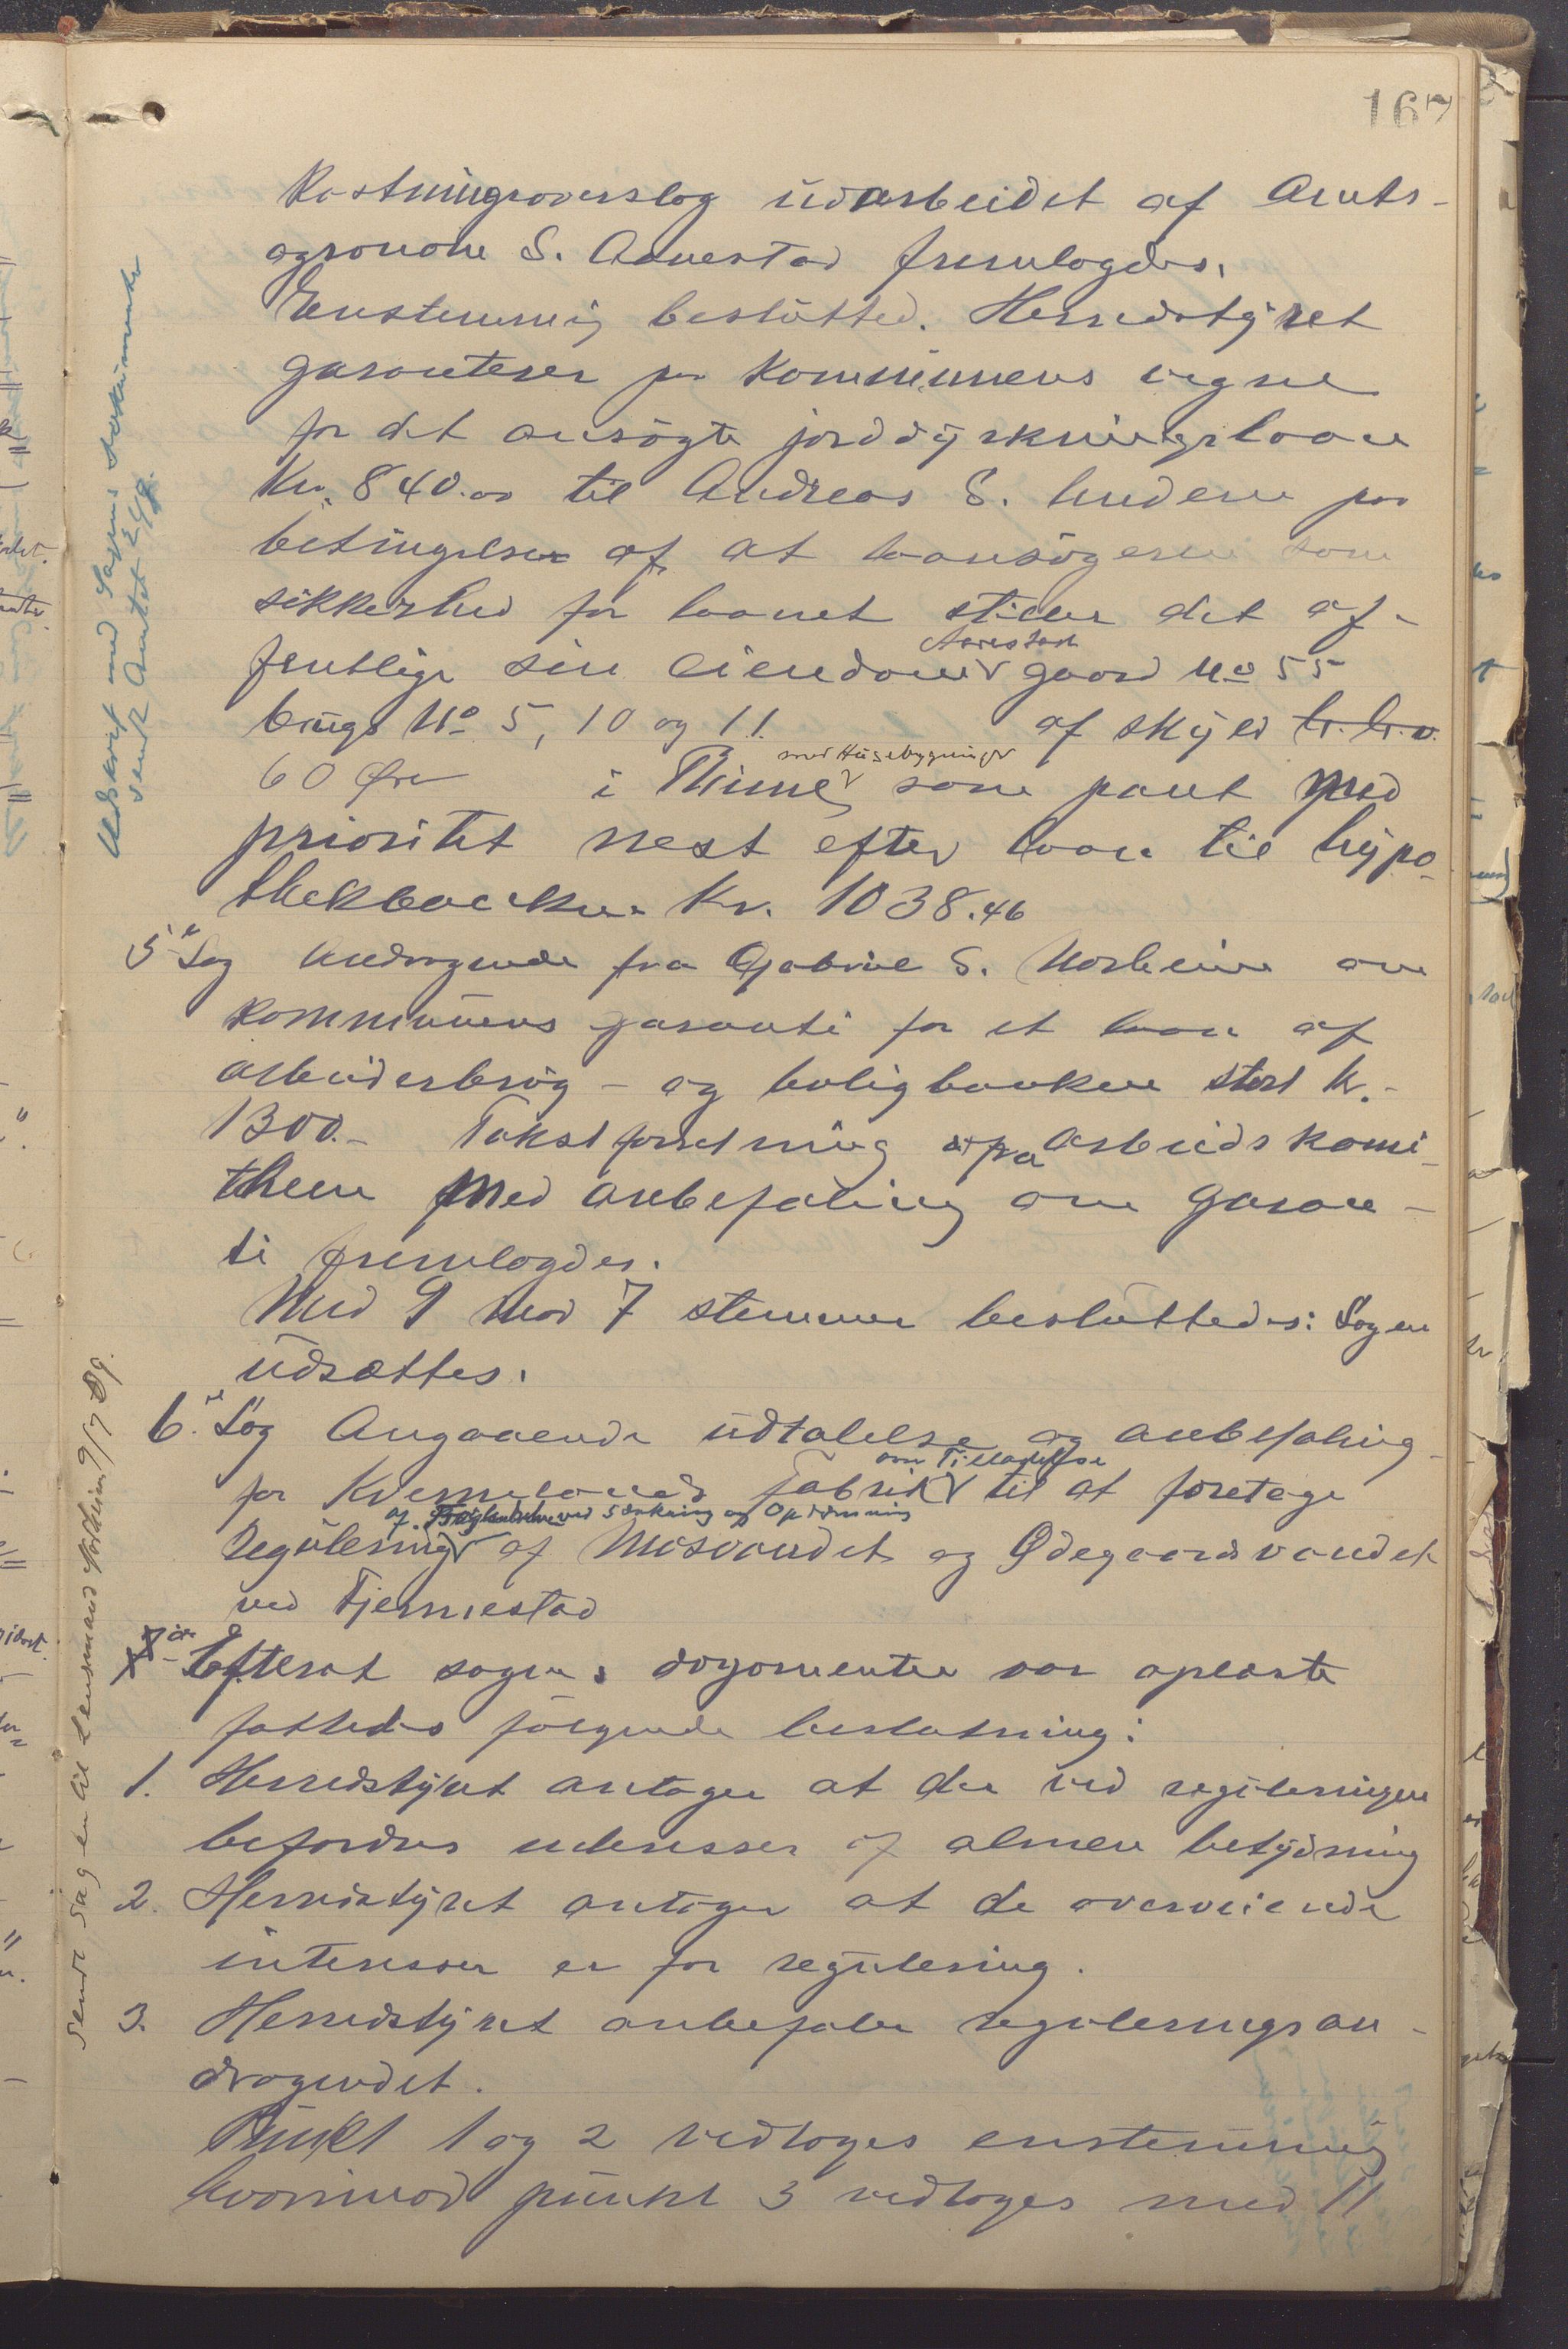 167
Kostningsoverslag udarbeidet af Amts-
agronom S. Aanestad fremlagdes.
Enstemmig beslutted. Herredstyret
garanterer paa Kommunens vegne
for det ansøgte jorddyrkningslaan
Kr. 840.00 til Andreas S. Undem paa
betingelser af at laansøgeren som
sikkerhed for laanet stiller det of-
fentlige sin eiendom Aarestad gaard No 55
brugs No 5, 10 og 11. af skyld
60 Øre i Thime med Husebygninger som pant med
prioritet nest efter laan til hypo-
thekbanken Kr. 1038.46
5te Sag Andragende fra Gabriel S. Norheim om
kommunens garanti for et laan af
arbeiderbrug- og boligbanken stort kr.-
1300.- Takstforretning fra Arbeidskomi-
theen med anbefaling om garan-
ti fremlagdes.
Med 9 mod 7 stemmer besluttedes: Sagen
udsættes.
6te Sag Angaaende udtalelse og anbefaling
for Kvernelands Fabrik om Tilladelse til at foretage
Regulering ved Sænkning og Opdæmning af Mosvandet og Ødegaardsvandet
ved Tjermestad
Efterat sagens dogomenter var oplæste
fattedes følgende beslutning:
1. Herredstyret antager at der ved reguleringen
befordres interesser af almen betydning
2. Herredstyret antager at de overveiende
interesser er for regulering.
3. Herredstyret anbefaler reguleringsan-
dragendet.
Punkt 1 og 2 vedtoges enstemmig
hvorimod punkt 3 vedtoges med 11
Udskrift med Sagens Dokumenter
sendt Amtet
Sendt Sagen til Lensmand Norheim 9/7 09.